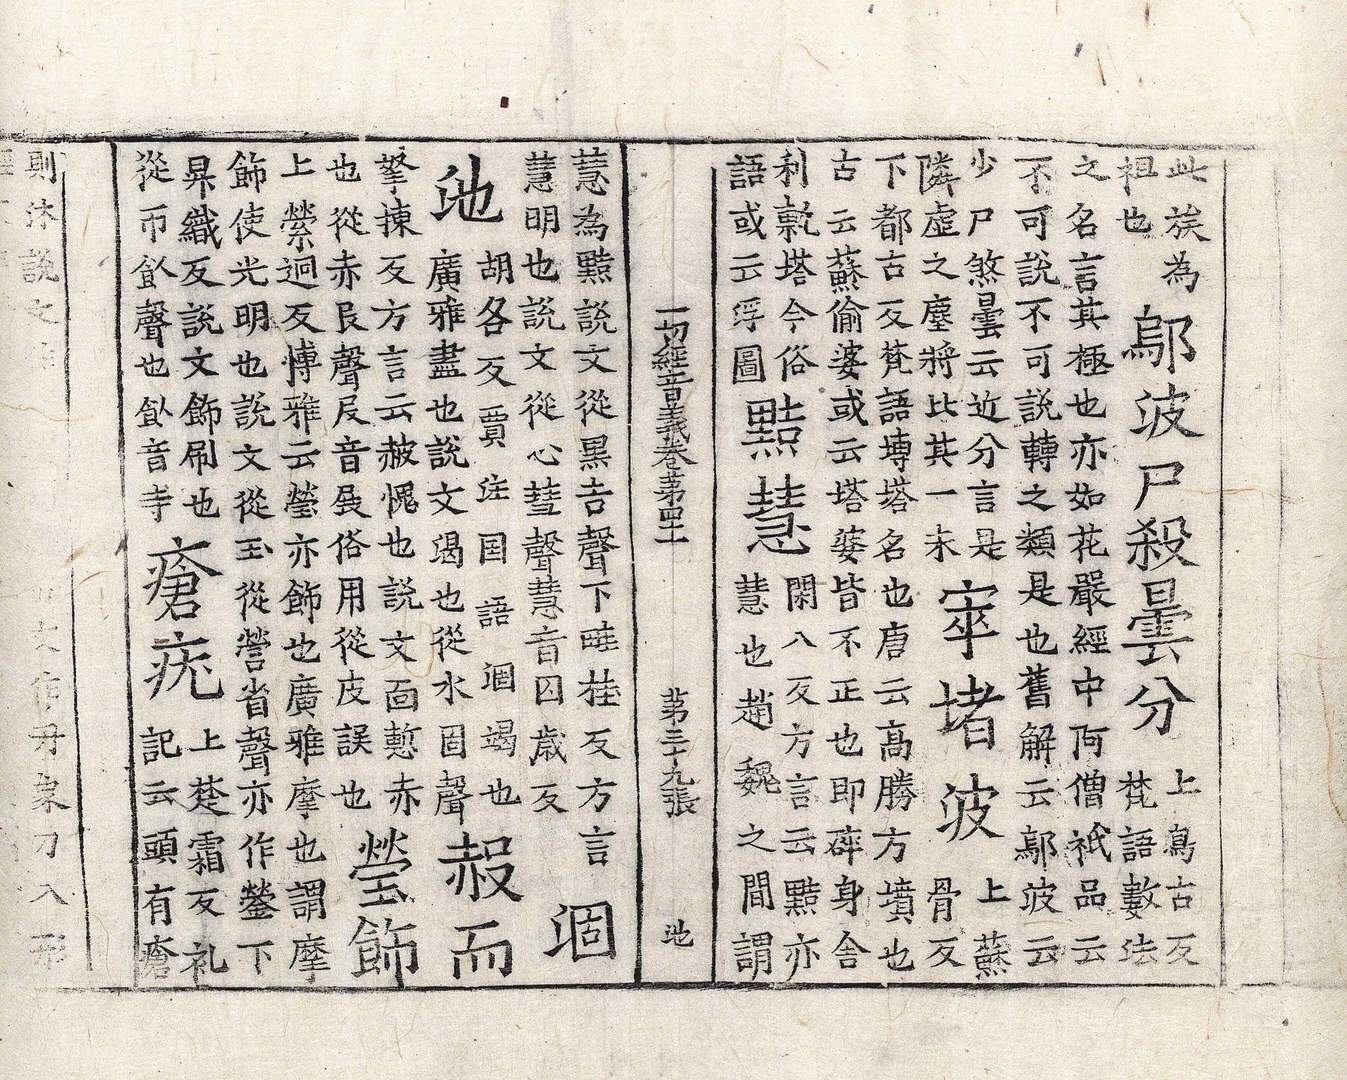 此族為
祖也
鄔波尸殺曇分
上烏古反
梵語數法
之名言其極也亦如花嚴經中阿僧祇品云
不可說不可說轉之類是也舊解云鄔波云
少尸煞曇云近分言是
隣虛之塵將比其一末
窣堵波
上蘇
骨反
下都古反梵語塼塔名也唐云高勝方墳也
古云蘇偷婆或云塔婆皆不正也即碎身舍
利塔今俗
語或云浮圖
黠慧
閑八反方言云黠亦
慧也趙魏之間謂
一切經音義卷第四十一 第三十九張 池
慧為黠說文從黑吉聲下畦桂反方言
慧明也說文從心彗聲慧音囚歲反
涸
池
胡各反賈注国語涸竭也
廣雅盡也說文渴也從水固聲
赧而
拏揀反方言云赧愧也說文面慙赤
也從赤𠬝聲𠬝音展俗用從皮誤也
瑩飾
上縈迥反博雅云瑩亦飾也廣雅摩也謂摩
飾使光明也說文從玉從營省聲亦作鎣下
昇織反說文飾刷也
從巾飤聲也飤音寺
瘡疣
上楚霜反礼
記云頭有瘡
則沐說文